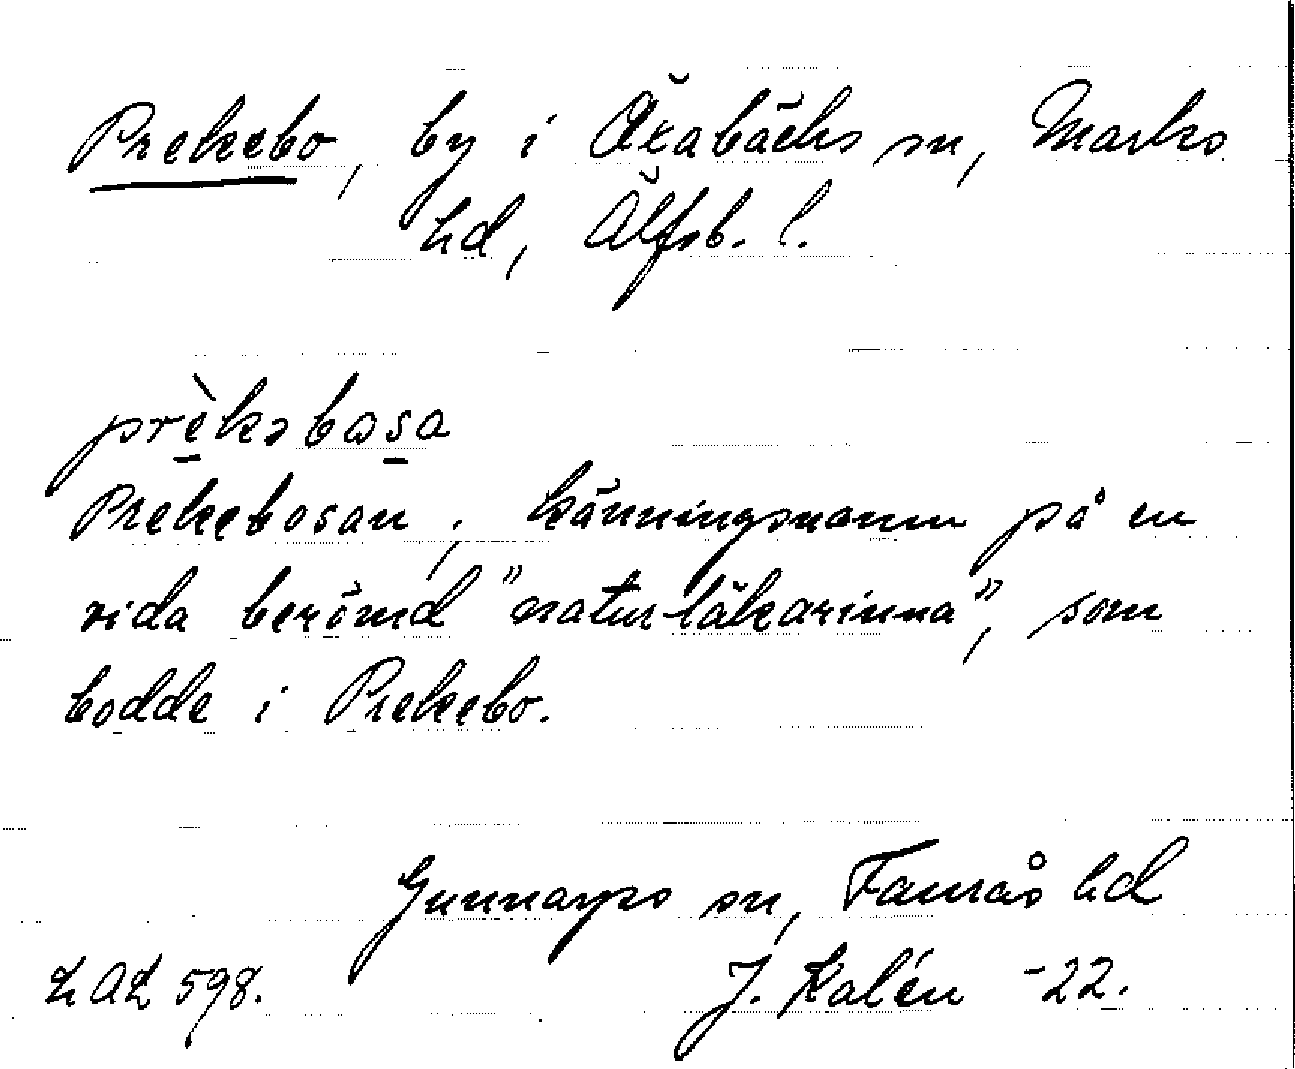 Prekebo, by i Öxabäcks sn, Marks
hd, Älfsb. l.
prèkəbosa
Prekebosan, känningsnamn på en
vida berömd "naturläkarinna", som
bodde i Prekebo.
Gunnarps sn, Faurås hd
LAL 598.
J. Kalén -22.